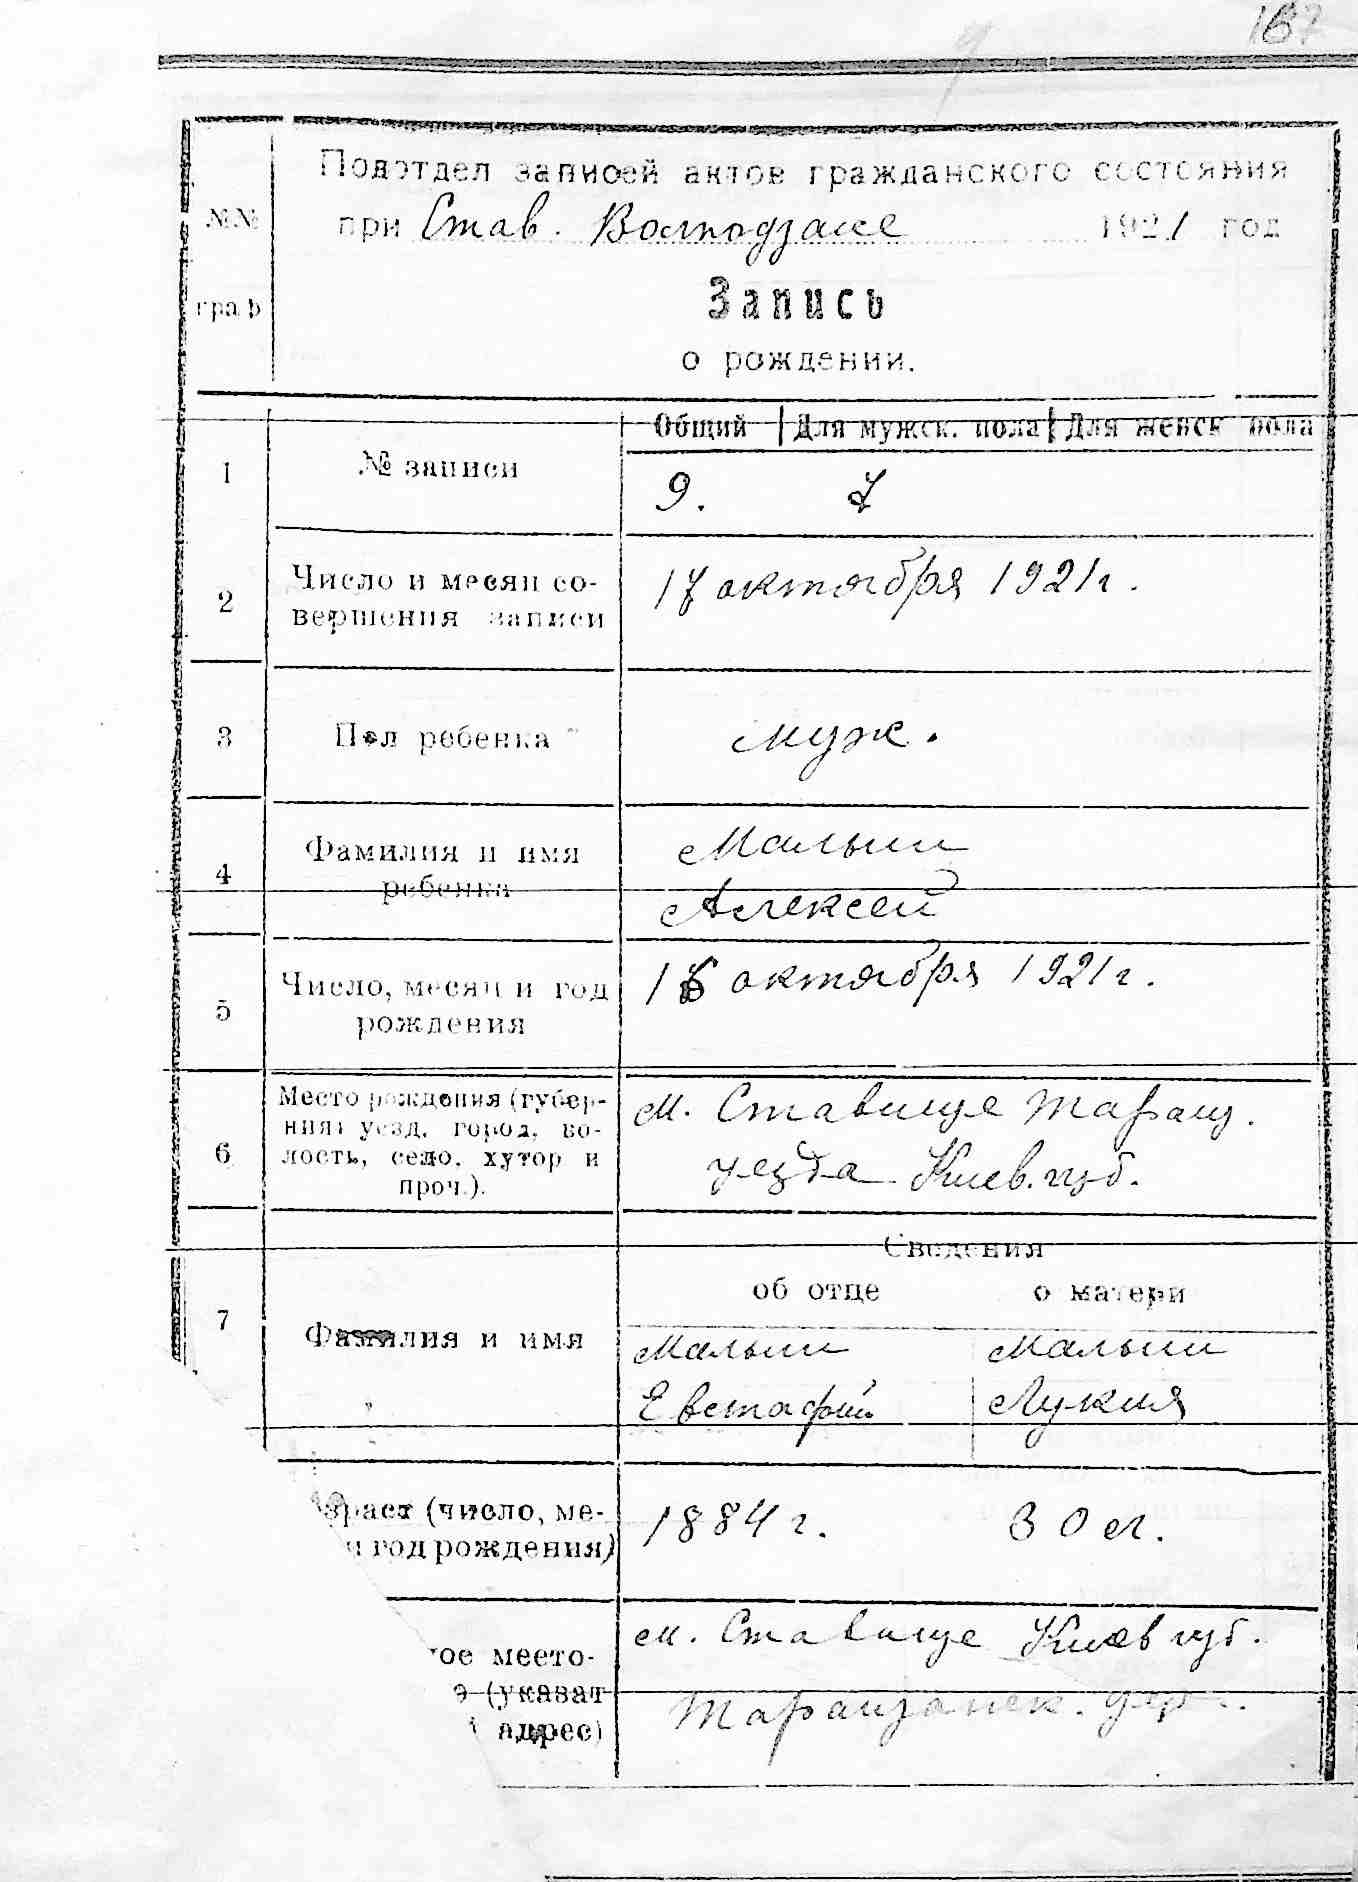 167
Подотдел записей актов гражданского состояния
при Став. Волподзаге 1921 год
№№
граф
Запись
о рождении.
Общий Для мужск. пола Для женск пола
1 № записи
9. 7
2 Число и месяц со-
вершения записи
17 октября 1921 г.
3 Пол ребенка
муж.
4 Фамилия и имя
ребенка
Малыш
Алексей
5 Число, месяц и год
рождения
16 октября 1921 г.
6 Место рождения (губер-
ния, уезд, город, во-
лость, село, хутор и
проч.).
м. Ставище Таращ.
уезда Киев. губ.
Сведения
об отце о матери
7 Фамилия и имя
Малыш Малыш
Евстафий Лукия
зраст (число, ме-
и год рождения)
1884 г. 30 л.
ое место-
э (указат
адрес)
м. Ставище Киев губ.
Таращанск.